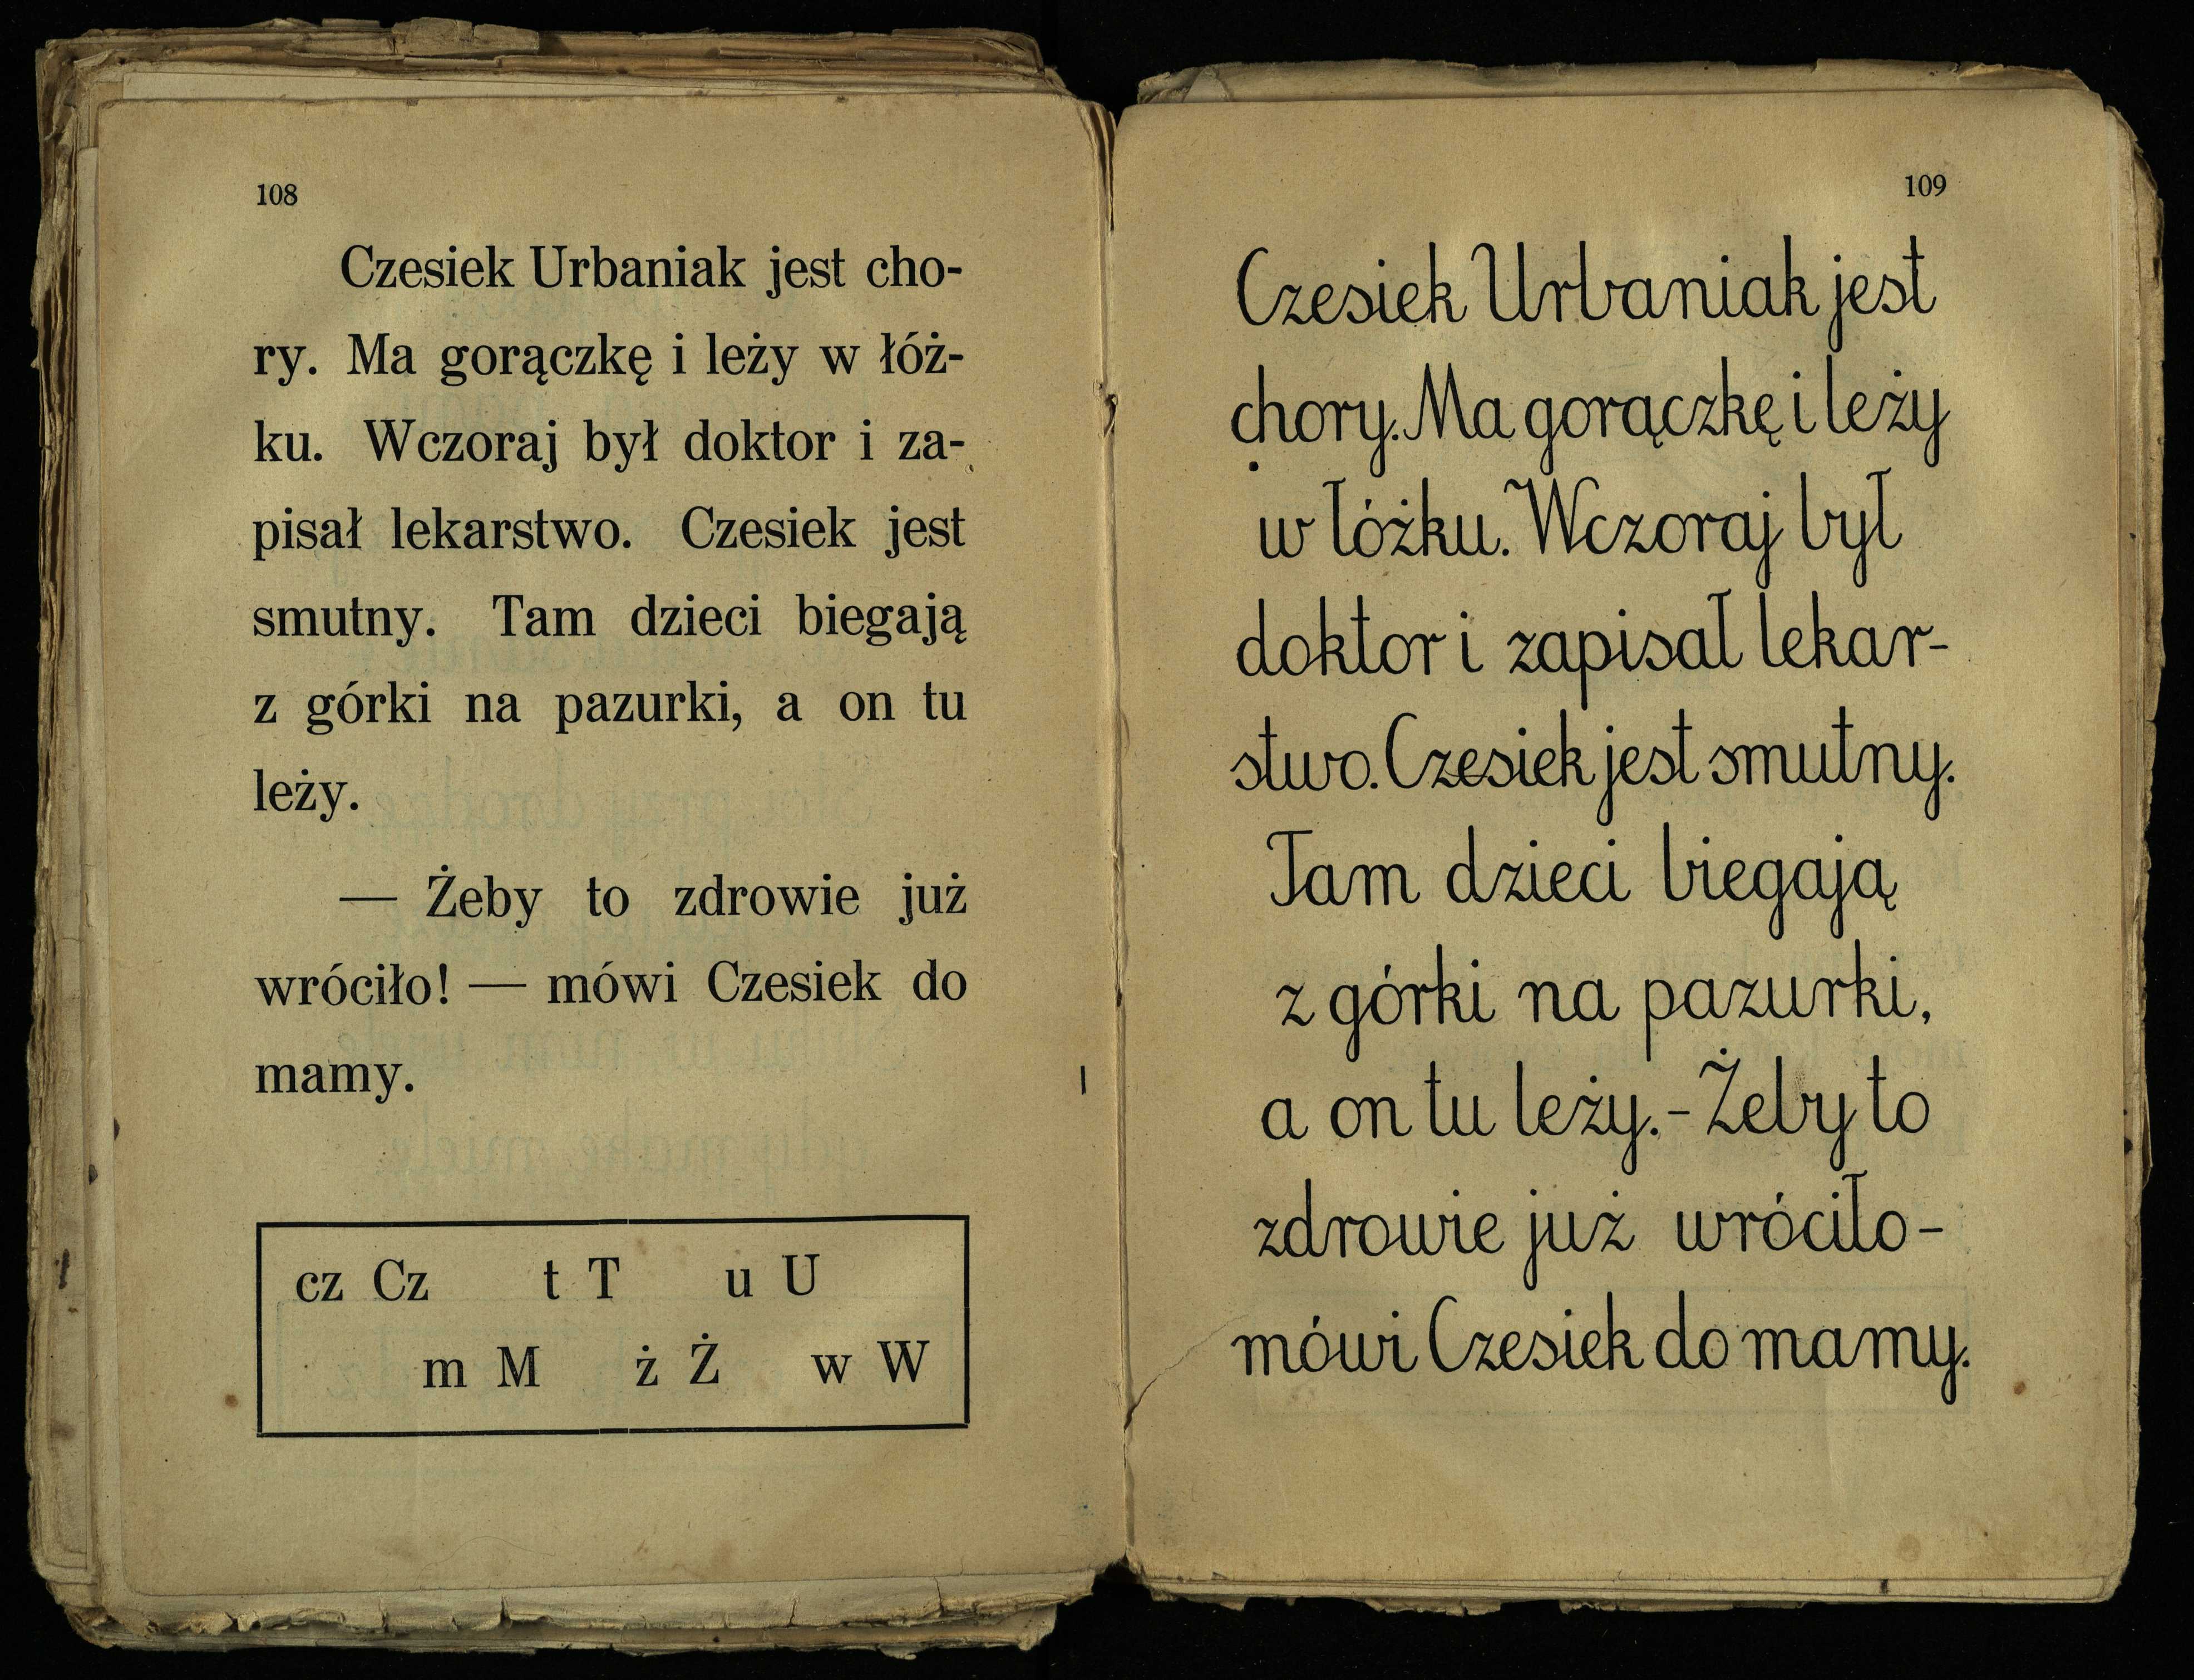 108
Czesiek Urbaniak jest cho-
ry. Ma gorączkę i leży w łóż-
ku. Wczoraj był doktor i za-
pisał lekarstwo. Czesiek jest
smutny. Tam dzieci biegają
z górki na pazurki, a on tu
leży.
— Żeby to zdrowie już
wróciło! — mówi Czesiek do
mamy.
cz Cz t T u U
m M ż Ż w W
109
Czesiek Urbaniak jest
chory. Ma gorączkę i leży
w łóżku. Wczoraj był
doktor i zapisał lekar-
stwo. Czesiek jest smutny.
Tam dzieci biegają
z górki na pazurki,
a on tu leży. - Żeby to
zdrowie już wróciło -
mówi Czesiek do mamy.